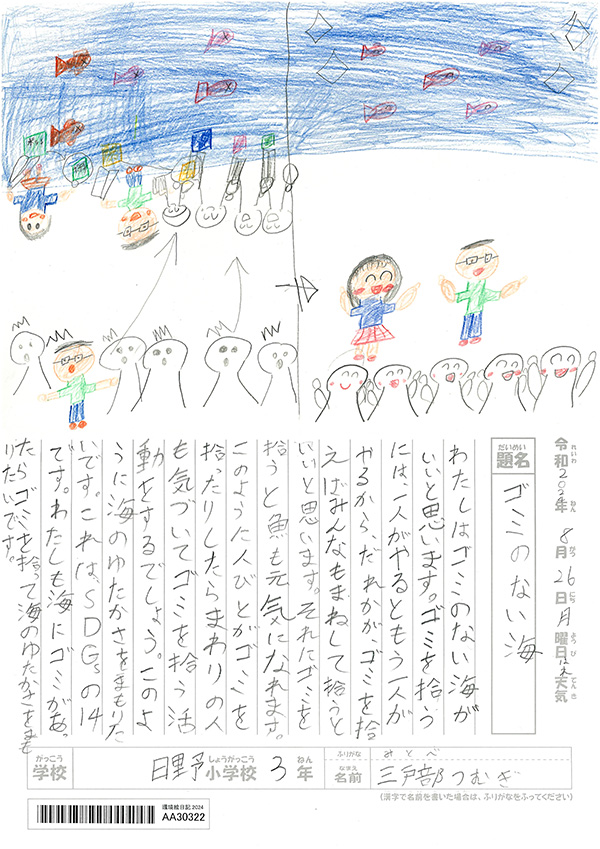 令和2024年8月26日月曜日
れいわ ねん がつ にち ようび てんき
天気
だいめい
題名
ゴミのない海
わたしはゴミのない海が
いいと思います。ゴミを拾う
には、一人がやるともう一人が
やるから、だれかが、ゴミを拾
えばみんなもまねして拾うと
いいと思います。それにゴミを
拾うと魚も元気になれます。
このように人びとがゴミを
拾ったりしたらまわりの人
も気づいてゴミを拾う活
動をするでしょう。このよ
うに海のゆたかさをまもりた
いです。これは、SDGsの14
です。わたしも海にゴミがあっ
たらゴミを拾って海のゆたかさをまも
りたいです。
がっこう しょうがっこう ねん
学校 日野小学校 3年
ふりがな みとべ
なまえ
名前 三戸部つむぎ
(漢字で名前を書いた場合は、ふりがなをふってください)
環境絵日記 2024
AA30322